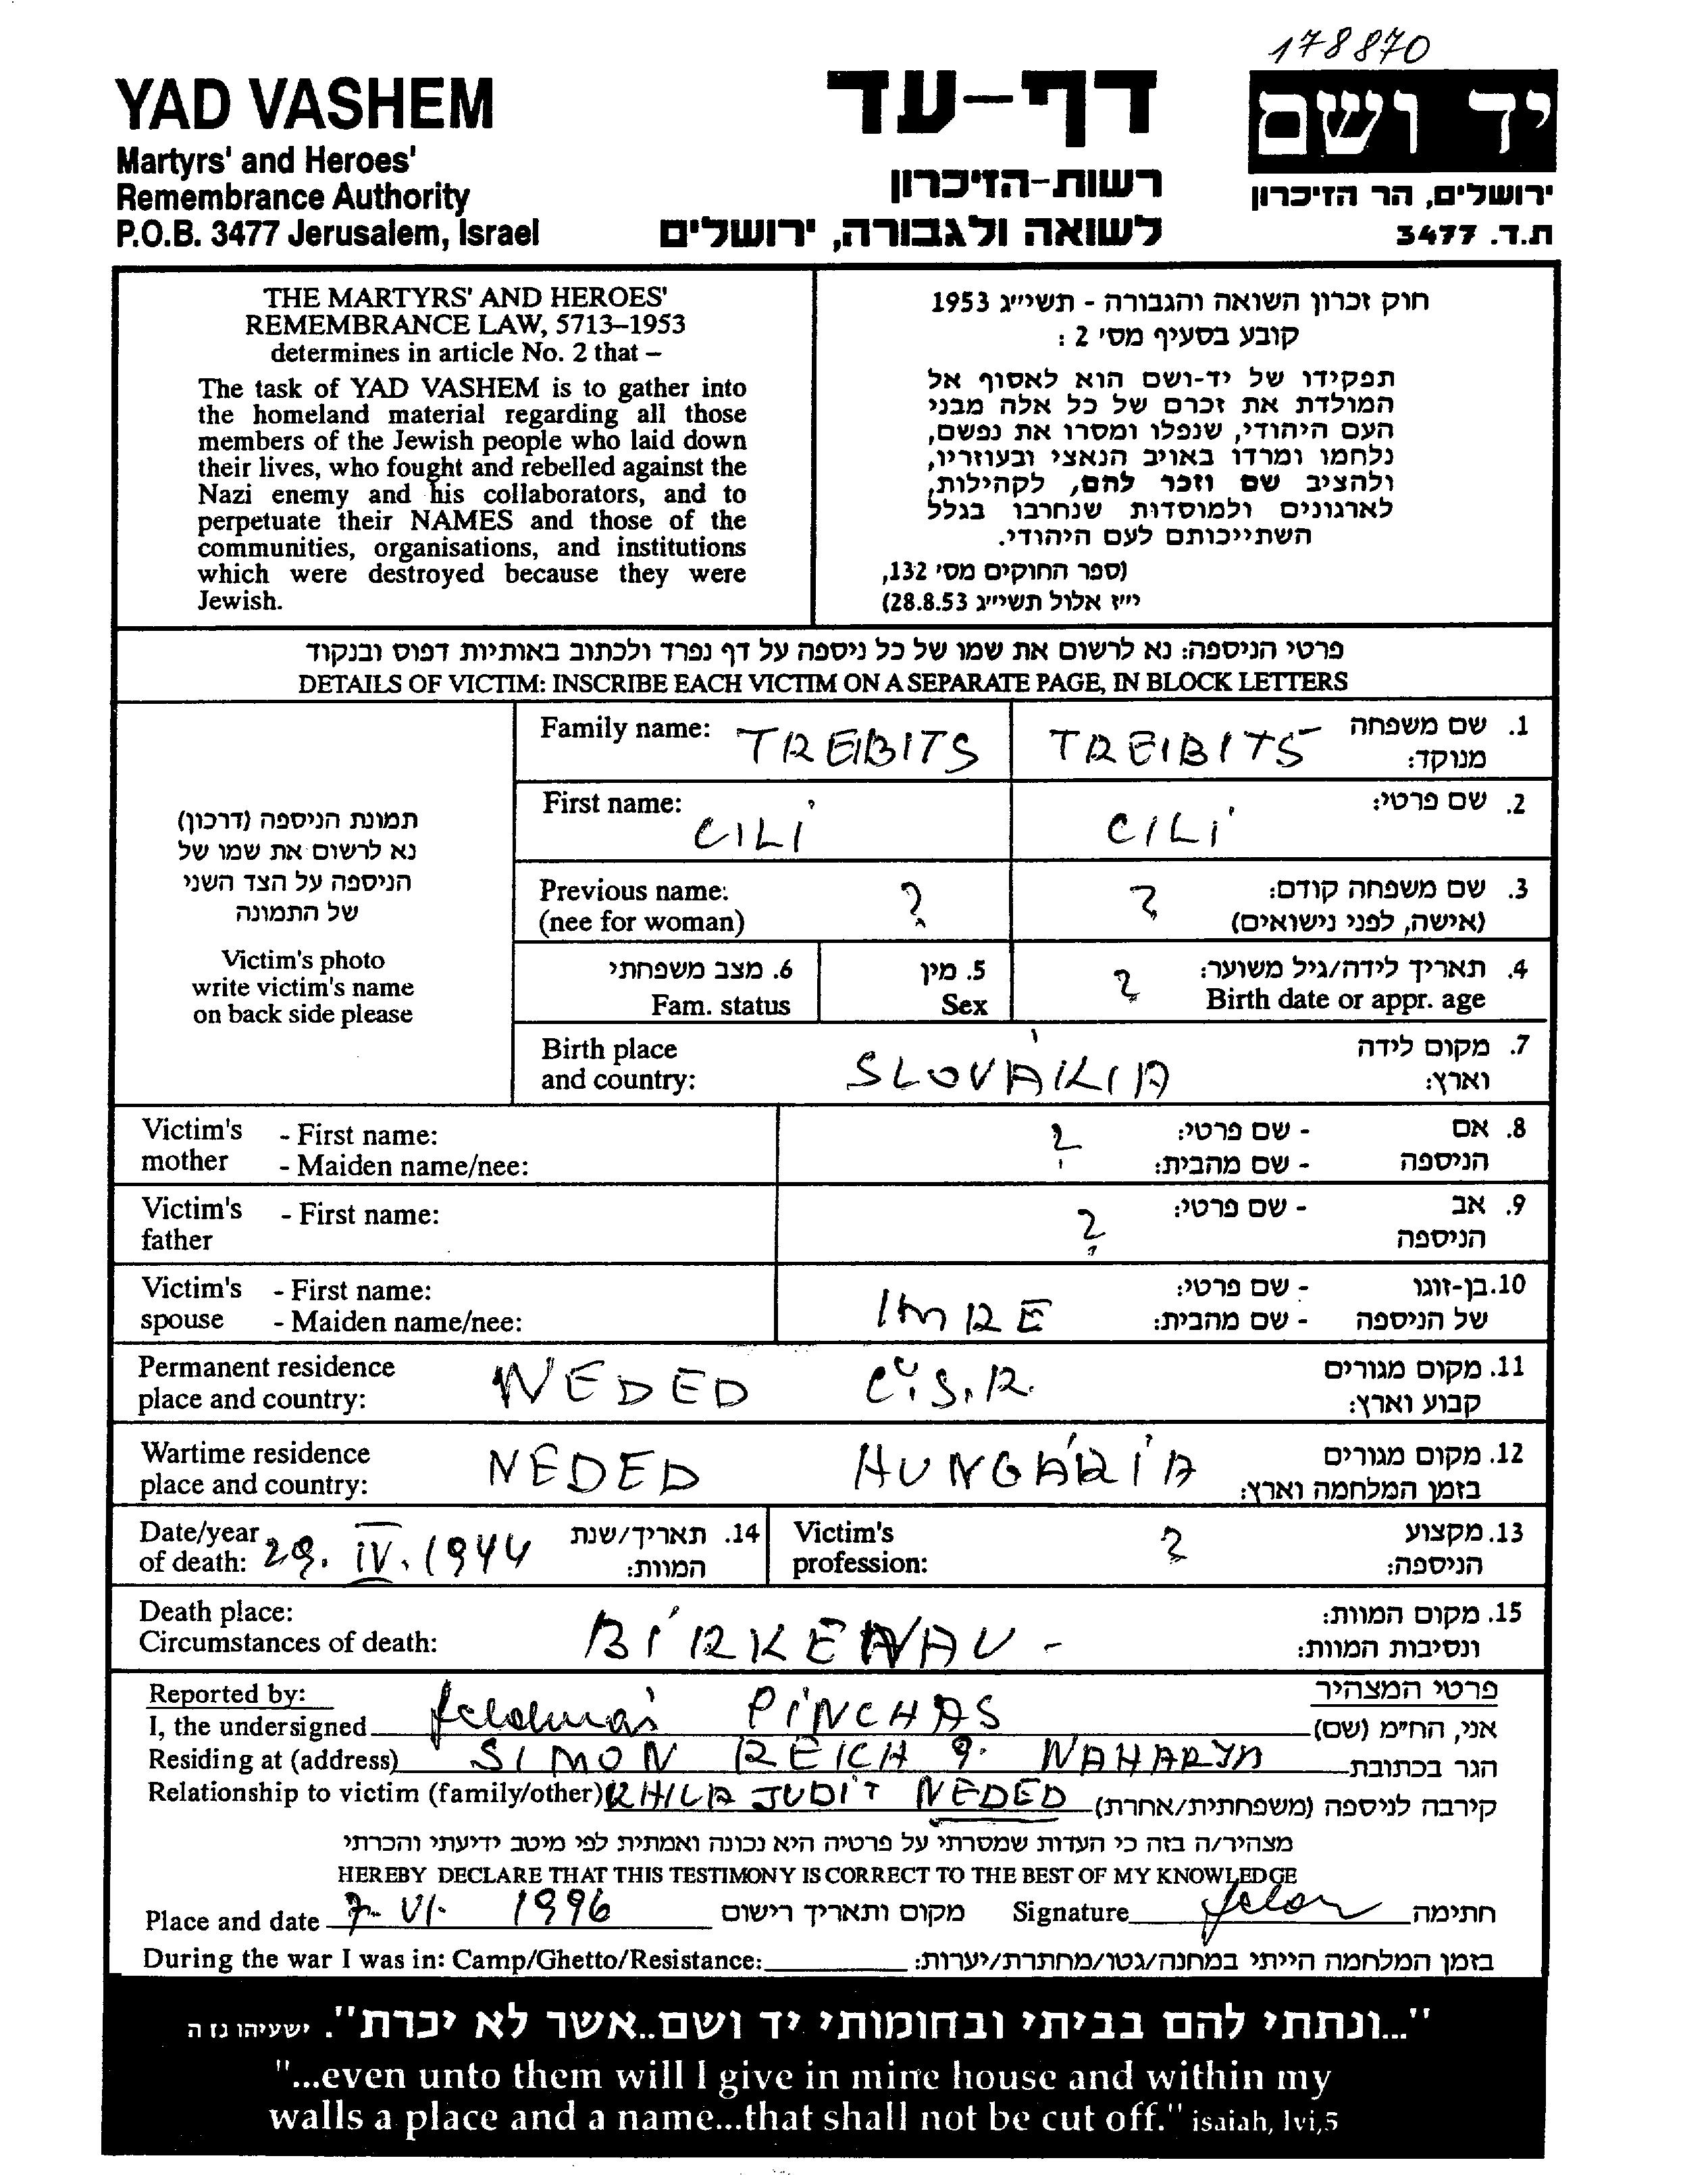 178870
YAD VASHEM
Martyrs' and Heroes'
Remembrance Authority
P.O.B. 3477 Jerusalem, Israel
דף-עד
רשות-הזיכרון
לשואה ולגבורה, ירושלים
יד ושם
ירושלים, הר הזיכרון
ת.ד. 3477
THE MARTYRS' AND HEROES'
REMEMBRANCE LAW, 5713–1953
determines in article No. 2 that –
The task of YAD VASHEM is to gather into
the homeland material regarding all those
members of the Jewish people who laid down
their lives, who fought and rebelled against the
Nazi enemy and his collaborators, and to
perpetuate their NAMES and those of the
communities, organisations, and institutions
which were destroyed because they were
Jewish.
חוק זכרון השואה והגבורה - תשי״ג 1953
קובע בסעיף מס׳ 2 :
תפקידו של יד-ושם הוא לאסוף אל
המולדת את זכרם של כל אלה מבני
העם היהודי, שנפלו ומסרו את נפשם,
נלחמו ומרדו באויב הנאצי ובעוזריו,
ולהציב שם וזכר להם, לקהילות,
לארגונים ולמוסדות שנחרבו בגלל
השתייכותם לעם היהודי.
(ספר החוקים מס׳ 132,
י״ז אלול תשי״ג 28.8.53)
פרטי הניספה: נא לרשום את שמו של כל ניספה על דף נפרד ולכתוב באותיות דפוס ובנקוד
DETAILS OF VICTIM: INSCRIBE EACH VICTIM ON A SEPARATE PAGE, IN BLOCK LETTERS
תמונת הניספה (דרכון)
נא לרשום את שמו של
הניספה על הצד השני
של התמונה
Victim's photo
write victim's name
on back side please
Family name: TREIBITS TREIBITS 1. שם משפחה
מנוקד:
First name: CILI CILI 2. שם פרטי:
Previous name: ? ? 3. שם משפחה קודם:
(nee for woman) (אישה, לפני נישואים)
6. מצב משפחתי 5. מין ? 4. תאריך לידה/גיל משוער:
Fam. status Sex Birth date or appr. age
Birth place SLOVÁKIA 7. מקום לידה
and country: וארץ:
Victim's - First name: ? - שם פרטי: 8. אם
mother - Maiden name/nee: - שם מהבית: הניספה
Victim's - First name: ? - שם פרטי: 9. אב
father הניספה
Victim's - First name: IMRE - שם פרטי: 10. בן-זוגו
spouse - Maiden name/nee: - שם מהבית: של הניספה
Permanent residence NEDED Č.S.R. 11. מקום מגורים
place and country: קבוע וארץ:
Wartime residence NEDED HUNGÁRIA 12. מקום מגורים
place and country: בזמן המלחמה וארץ:
Date/year 29. IV. 1944 14. תאריך/שנת
of death: המוות:
Victim's ? 13. מקצוע
profession: הניספה:
Death place: BIRKENAU - 15. מקום המוות:
Circumstances of death: ונסיבות המוות:
Reported by: פרטי המצהיר
I, the undersigned PINCHAS אני, הח״מ (שם)
Residing at (address) SIMON REICH 9. הגר בכתובת
Relationship to victim (family/other) JUDIT NEDED קירבה לניספה (משפחתית/אחרת)
מצהיר/ה בזה כי העדות שמסרתי על פרטיה היא נכונה ואמתית לפי מיטב ידיעתי והכרתי
HEREBY DECLARE THAT THIS TESTIMONY IS CORRECT TO THE BEST OF MY KNOWLEDGE
Place and date 7. VI. 1996 מקום ותאריך רישום Signature חתימה
During the war I was in: Camp/Ghetto/Resistance: בזמן המלחמה הייתי במחנה/גטו/מחתרת/יערות:
"...ונתתי להם בביתי ובחומותי יד ושם..אשר לא יכרת". ישעיהו נז ה
"...even unto them will I give in mine house and within my
walls a place and a name...that shall not be cut off." isaiah, lvi,5